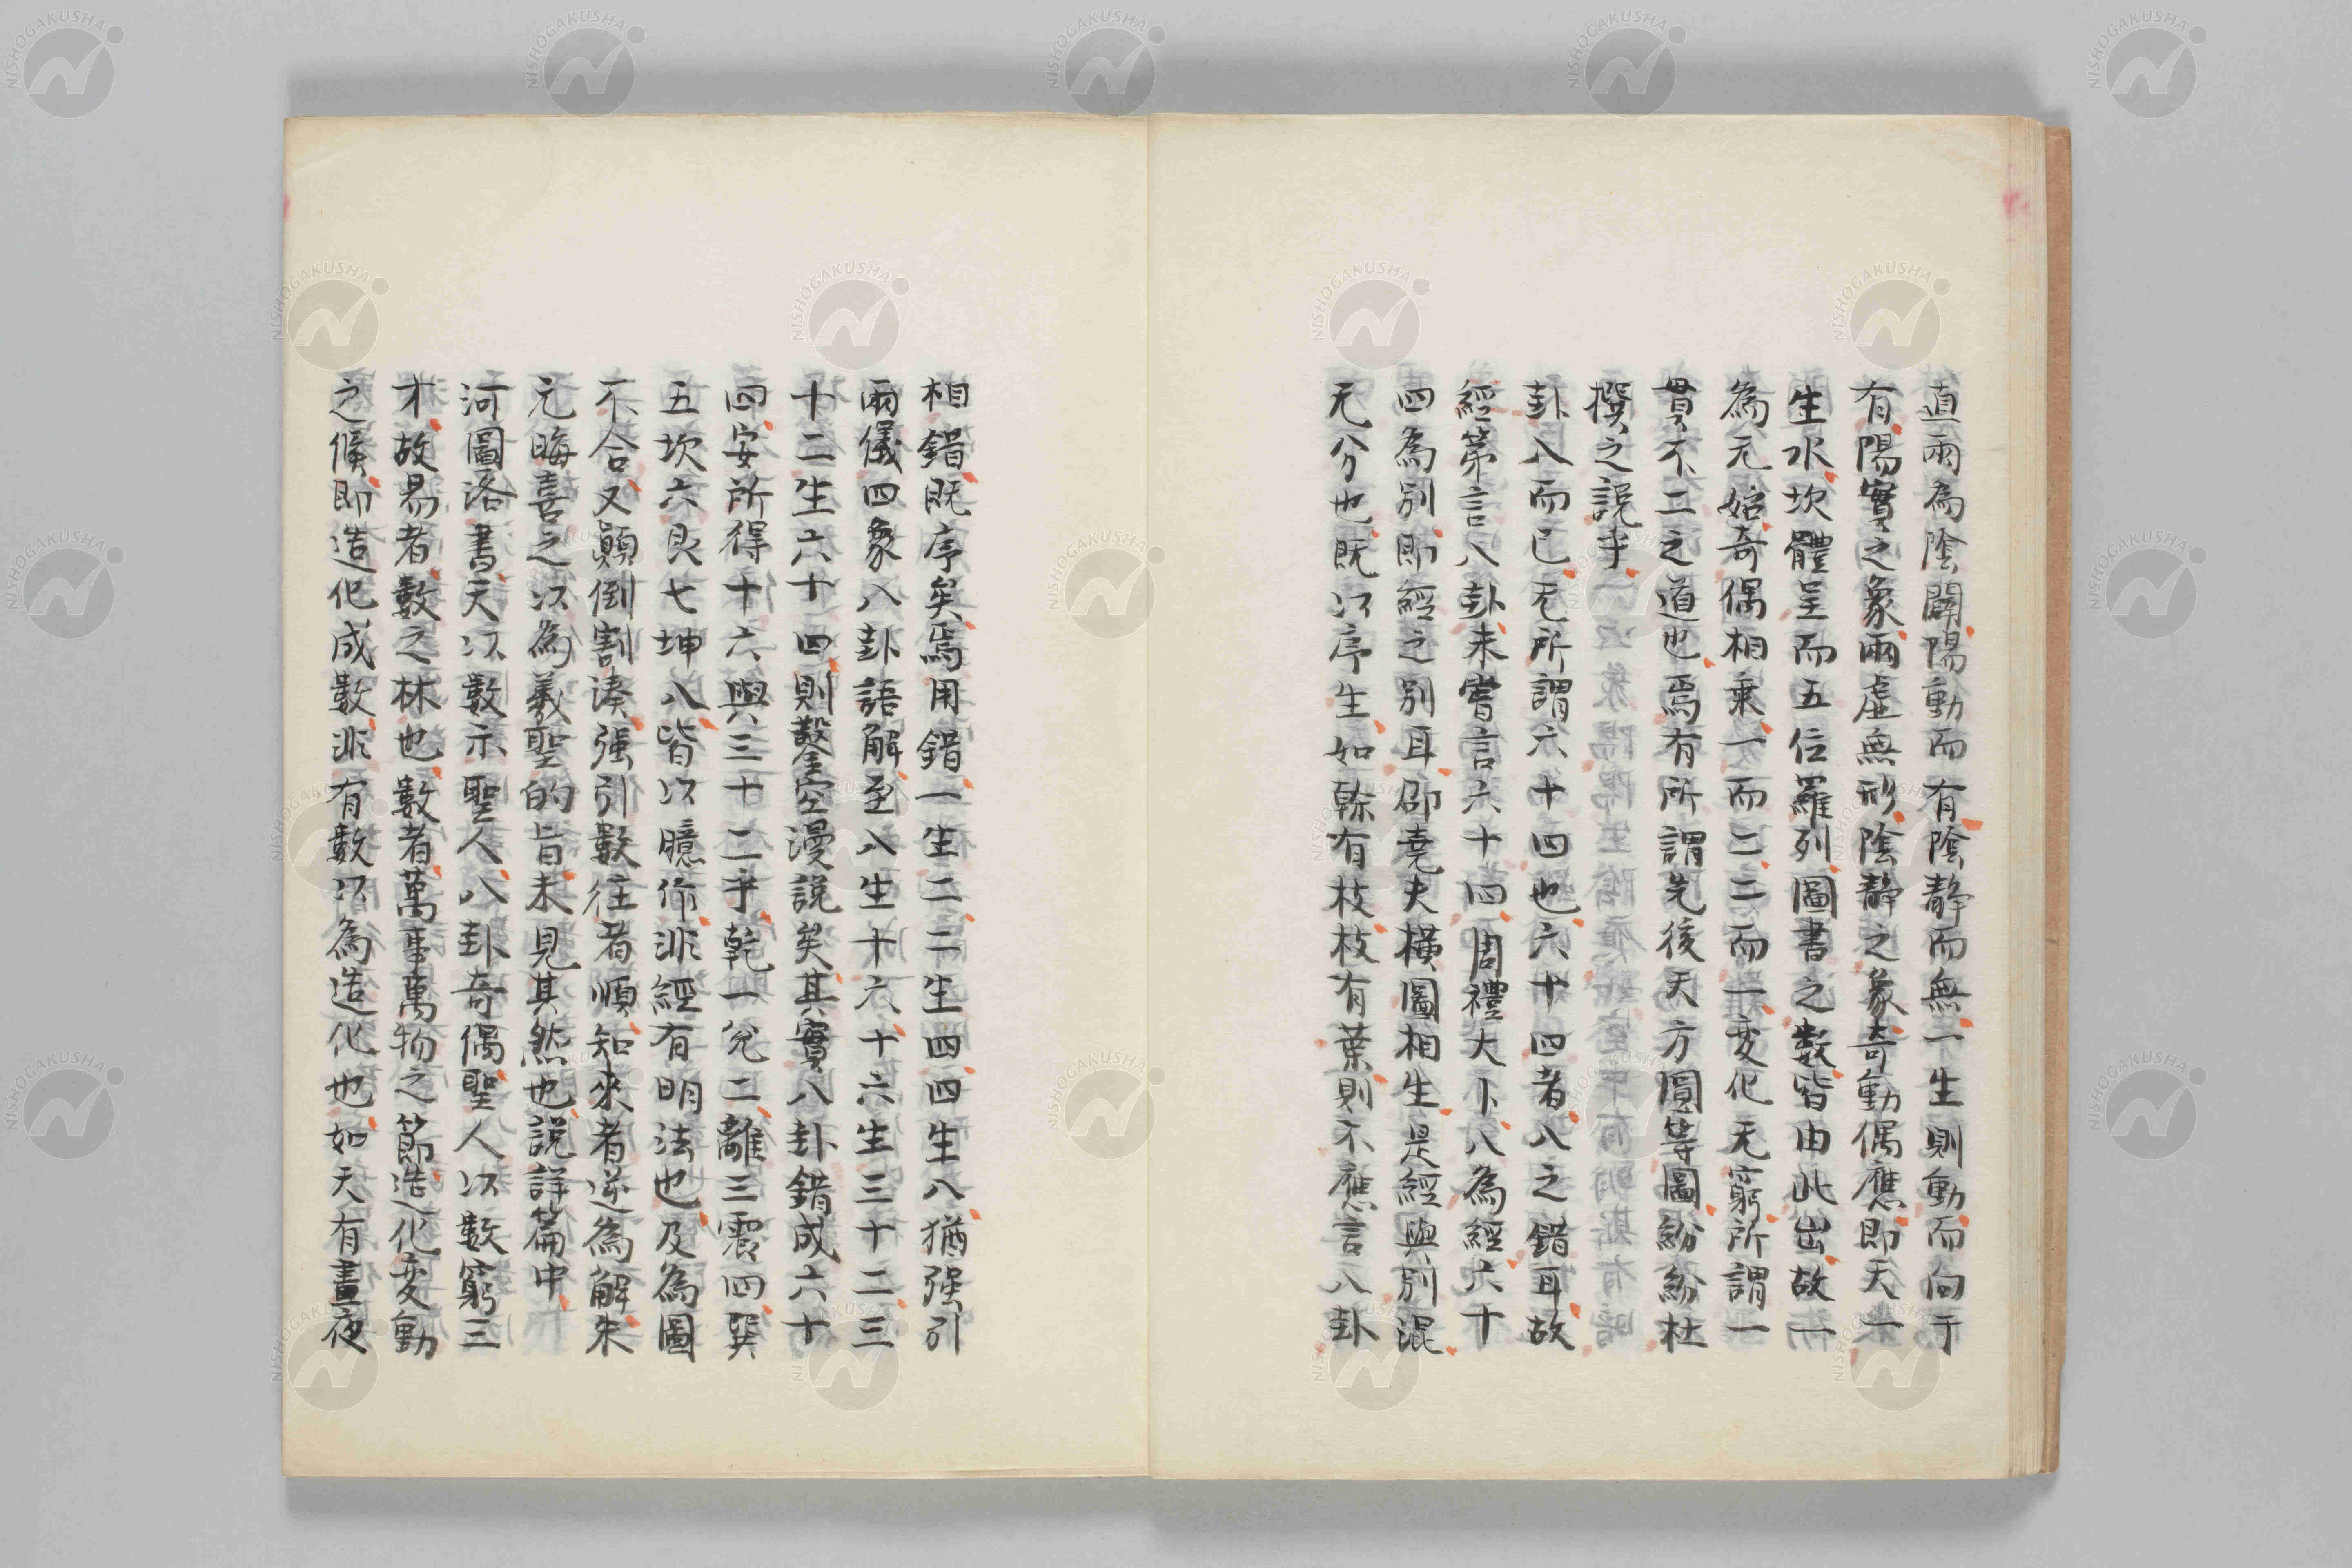 直兩為陰闢陽動而有陰靜而無一生則動而向于
有陽實之象兩虛無形陰靜之象奇動偶應即天一
生水坎體呈而五位羅列圖書之數皆由此出故一
為元始奇偶相乘一而二二而一変化无窮所謂一
貫不二之道也焉有所謂先後天方圓等圖紛紛杜
撰之說乎
卦八而已无所謂六十四也六十四者八之錯耳故
經第言八卦未嘗言六十四周禮大卜八為經六十
四為別即經之別耳邵堯夫橫圖相生是經與別混
无分也既以序生如榦有枝枝有葉則不應言八卦
相錯既序矣焉用錯一生二二生四四生八猶强引
兩儀四象八卦語解至八生十六十六生三十二三
十二生六十四則鑿空漫說矣其實八卦錯成六十
四安所得十六與三十二乎乾一兌二離三震四巽
五坎六艮七坤八皆以臆作非經有明法也及為圖
不合又顛倒割湊强引數往者順知來者逆為解朱
元晦喜之以為羲聖的旨未見其然也說詳篇中
河圖洛書天以數示聖人八卦奇偶聖人以數窮三
才故易者數之林也數者萬事萬物之節造化変動
之候即造化成數非有數以為造化也如天有晝夜
NISHOGAKUSHA